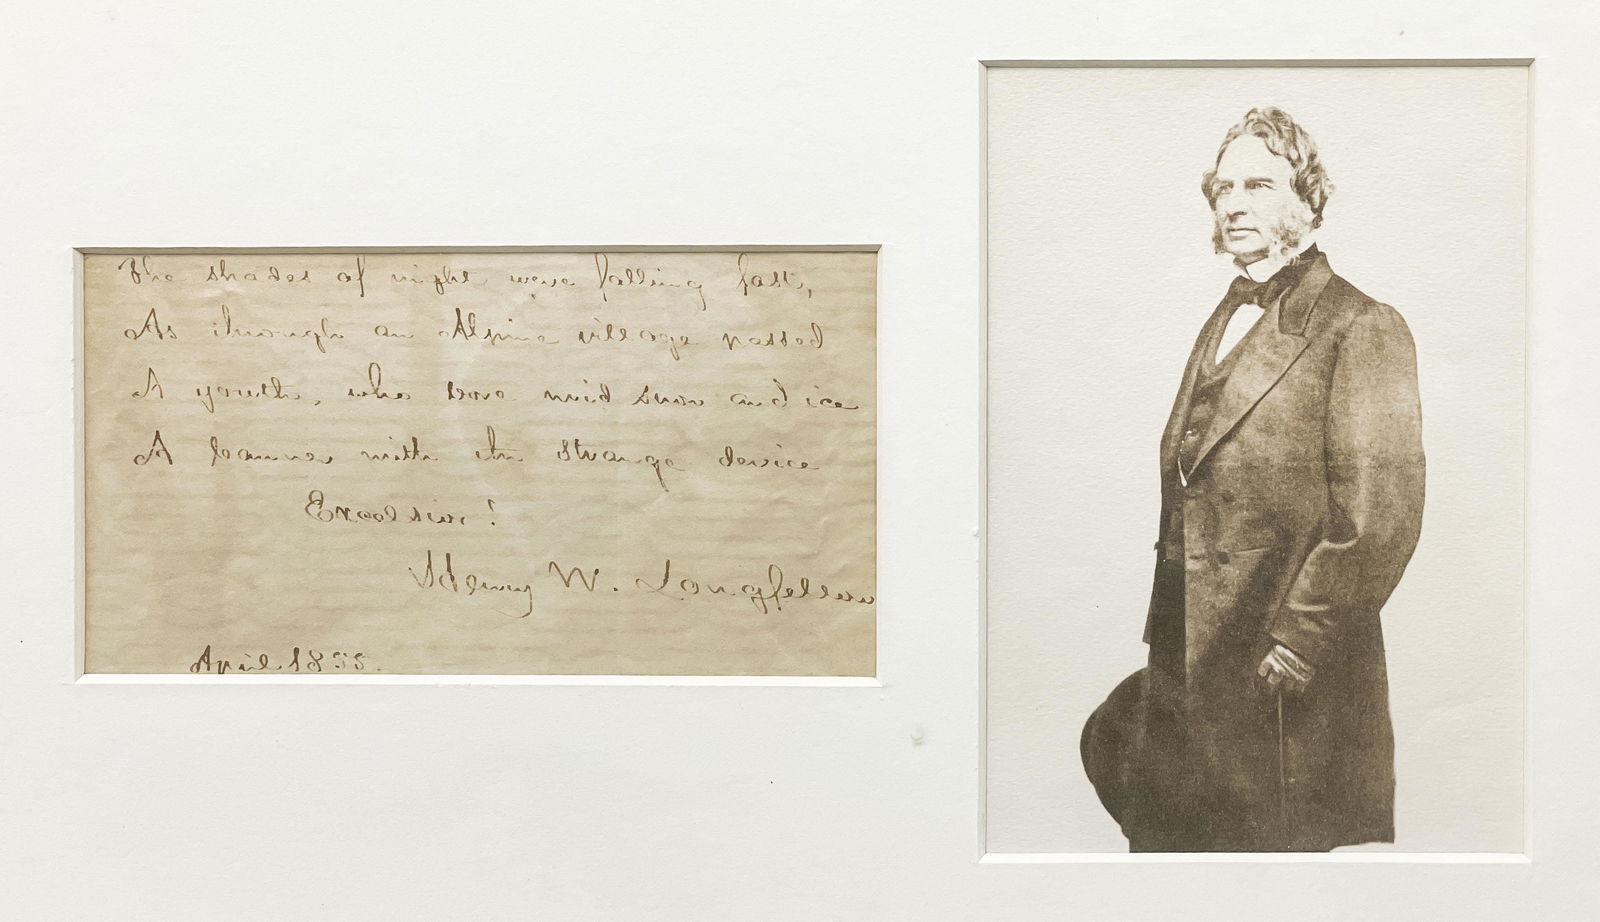 The shades of night were falling fast,
As through an Alpine village passed
A youth, who bore mid snow and ice
A banner with the strange device
Excelsior!
Henry W. Longfellow
April 1855.